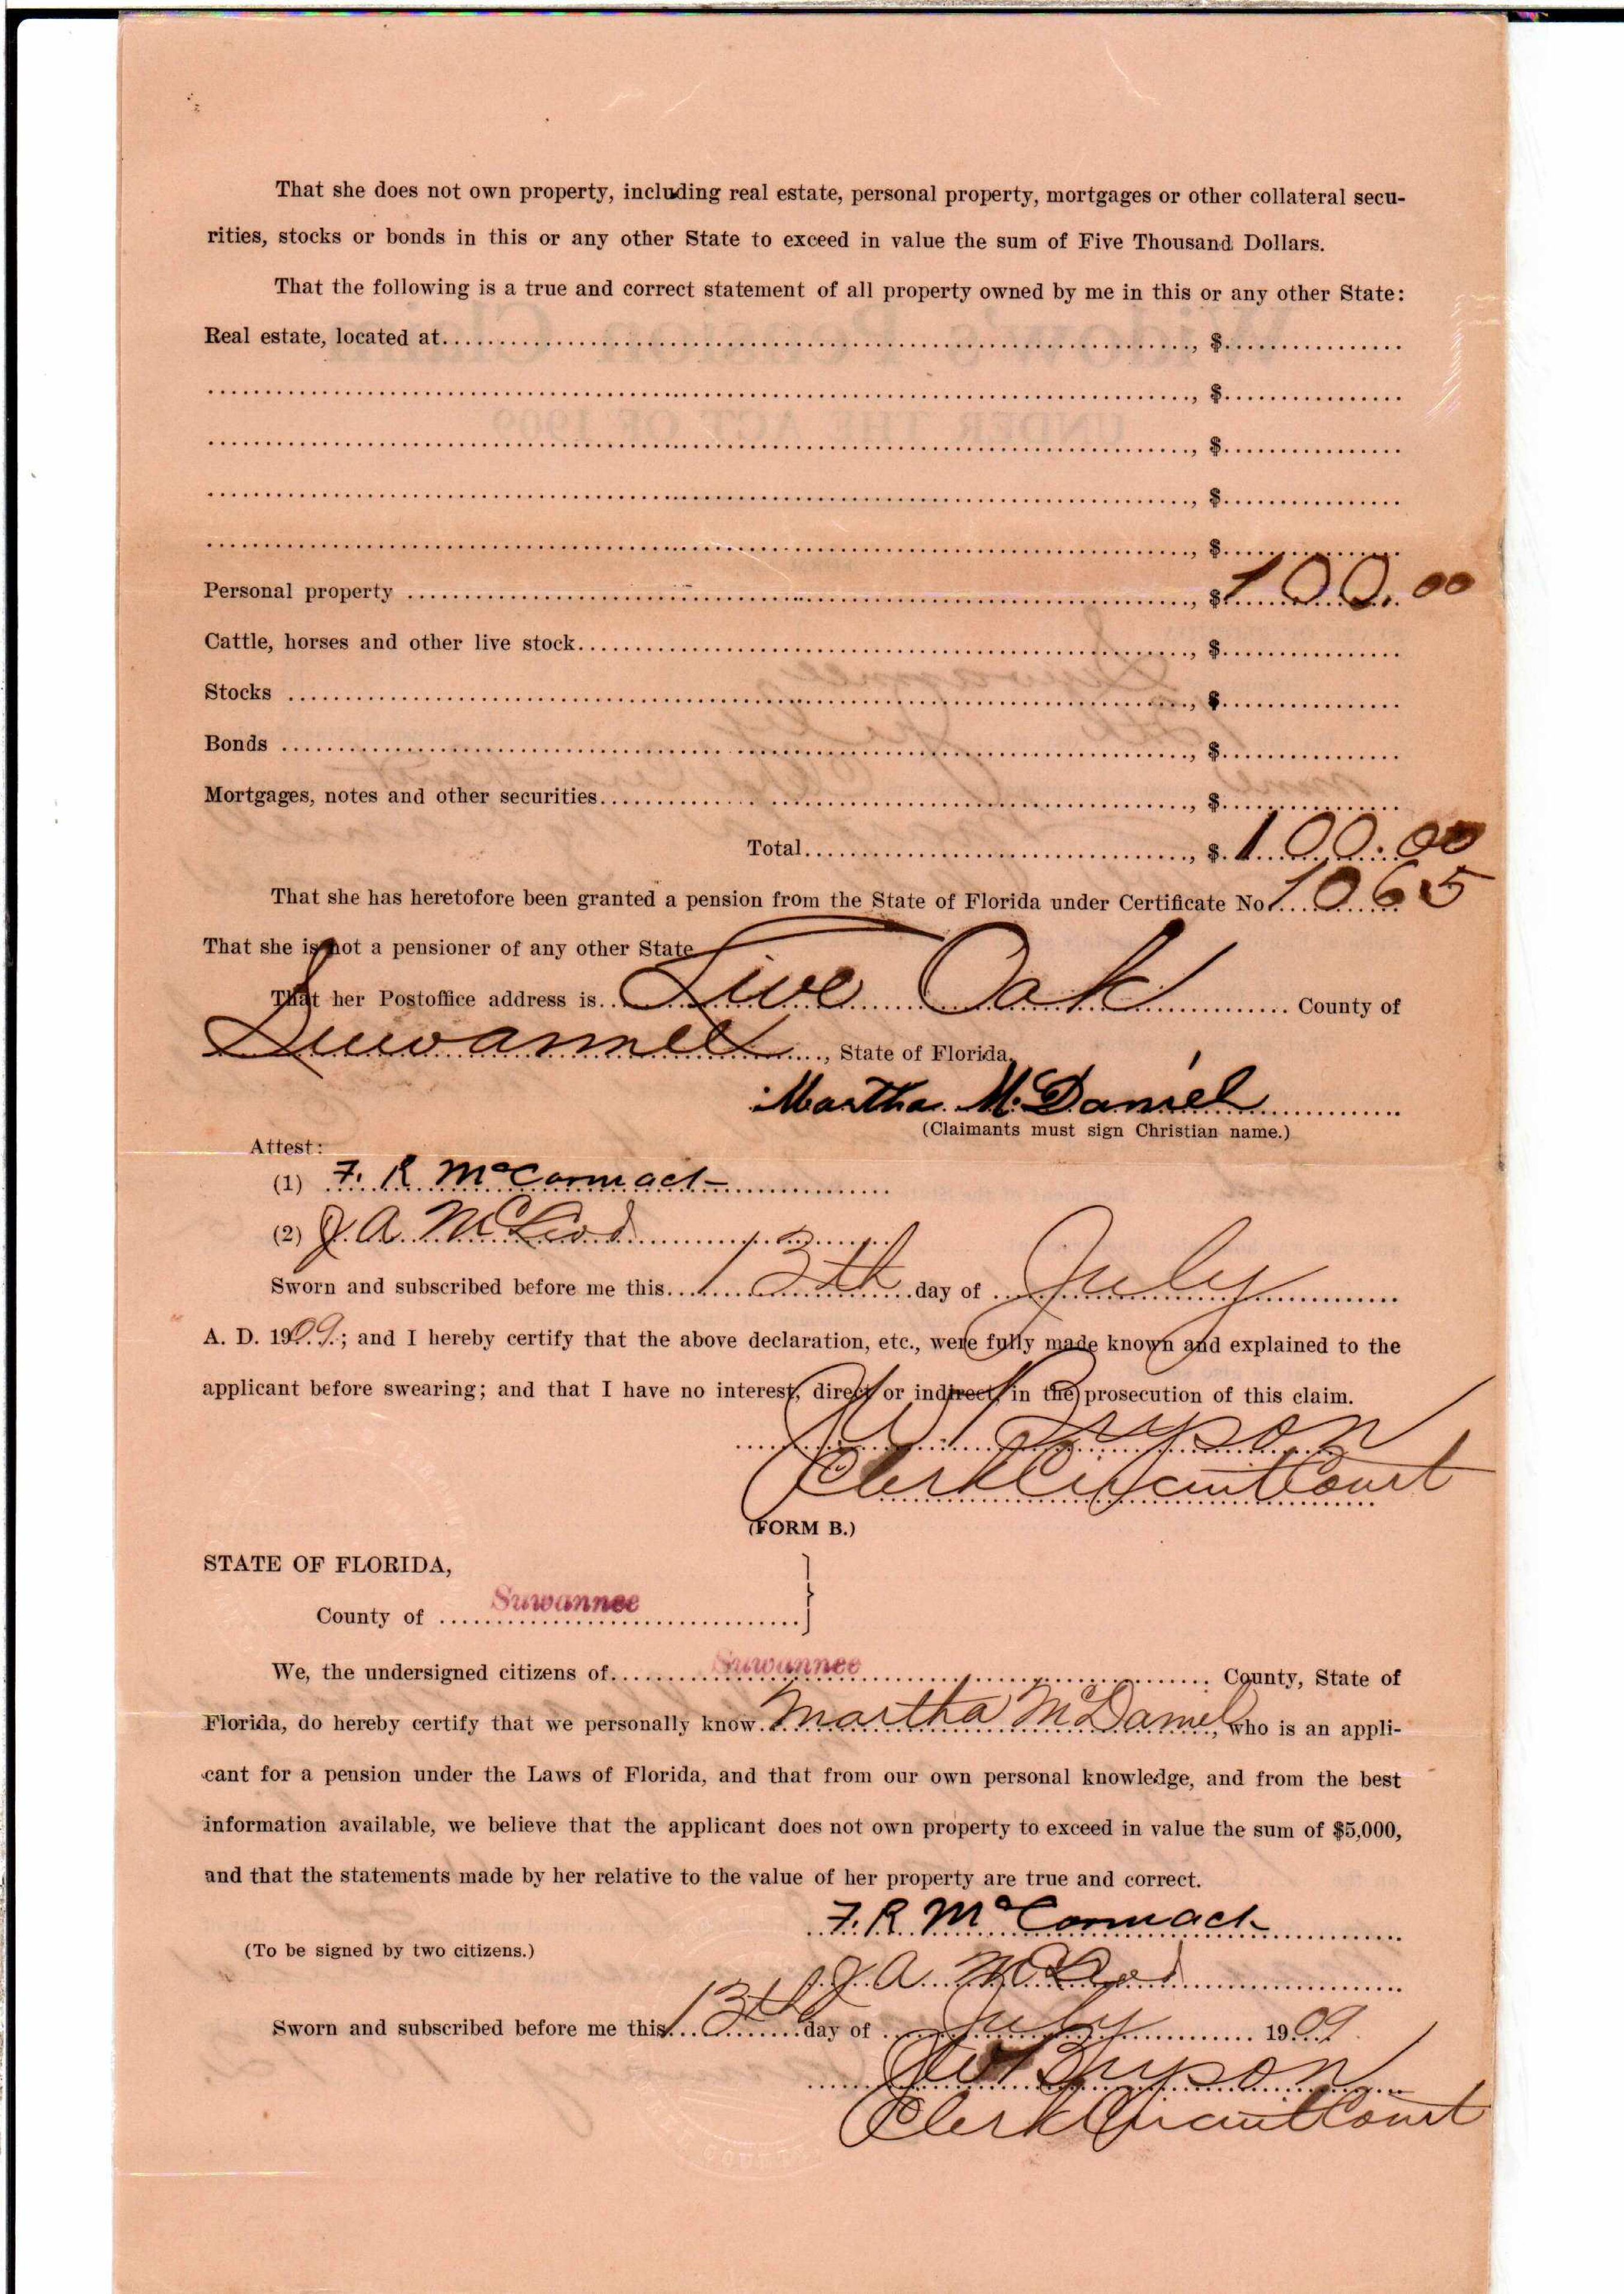 That she does not own property, including real estate, personal property, mortgages or other collateral secu-
rities, stocks or bonds in this or any other State to exceed in value the sum of Five Thousand Dollars.
That the following is a true and correct statement of all property owned by me in this or any other State:
Real estate, located at........................................, $................
........................................, $................
........................................, $................
........................................, $................
........................................, $................
Personal property ........................................, $100.00
Cattle, horses and other live stock........................................, $................
Stocks ........................................, $................
Bonds ........................................, $................
Mortgages, notes and other securities........................................, $................
Total........................................, $100.00
That she has heretofore been granted a pension from the State of Florida under Certificate No. 1065
That she is not a pensioner of any other State
That her Postoffice address is Live Oak County of
Suwannee, State of Florida.
Martha McDaniel
(Claimants must sign Christian name.)
Attest:
(1) F. R McCormack
(2) J. A. McLeod
Sworn and subscribed before me this 13th day of July
A. D. 1909; and I hereby certify that the above declaration, etc., were fully made known and explained to the
applicant before swearing; and that I have no interest, direct or indirect, in the prosecution of this claim.
J W Bryson
Clerk Circuit Court
(FORM B.)
STATE OF FLORIDA,
County of Suwannee
We, the undersigned citizens of Suwannee County, State of
Florida, do hereby certify that we personally know Martha McDaniel, who is an appli-
cant for a pension under the Laws of Florida, and that from our own personal knowledge, and from the best
information available, we believe that the applicant does not own property to exceed in value the sum of $5,000,
and that the statements made by her relative to the value of her property are true and correct.
F. R. McCormack
(To be signed by two citizens.)
J. A. McLeod
Sworn and subscribed before me this 13th day of July 1909
J W Bryson
Clerk Circuit Court